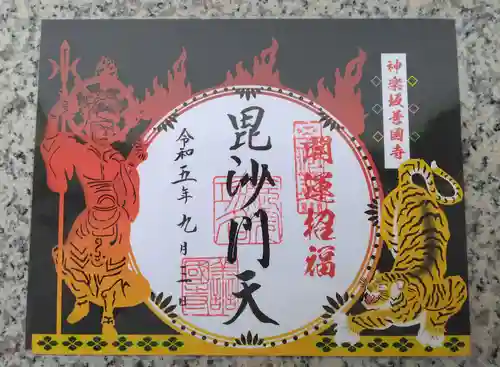 神楽坂善國寺
開運招福
毘沙門天
令和五年九月三日